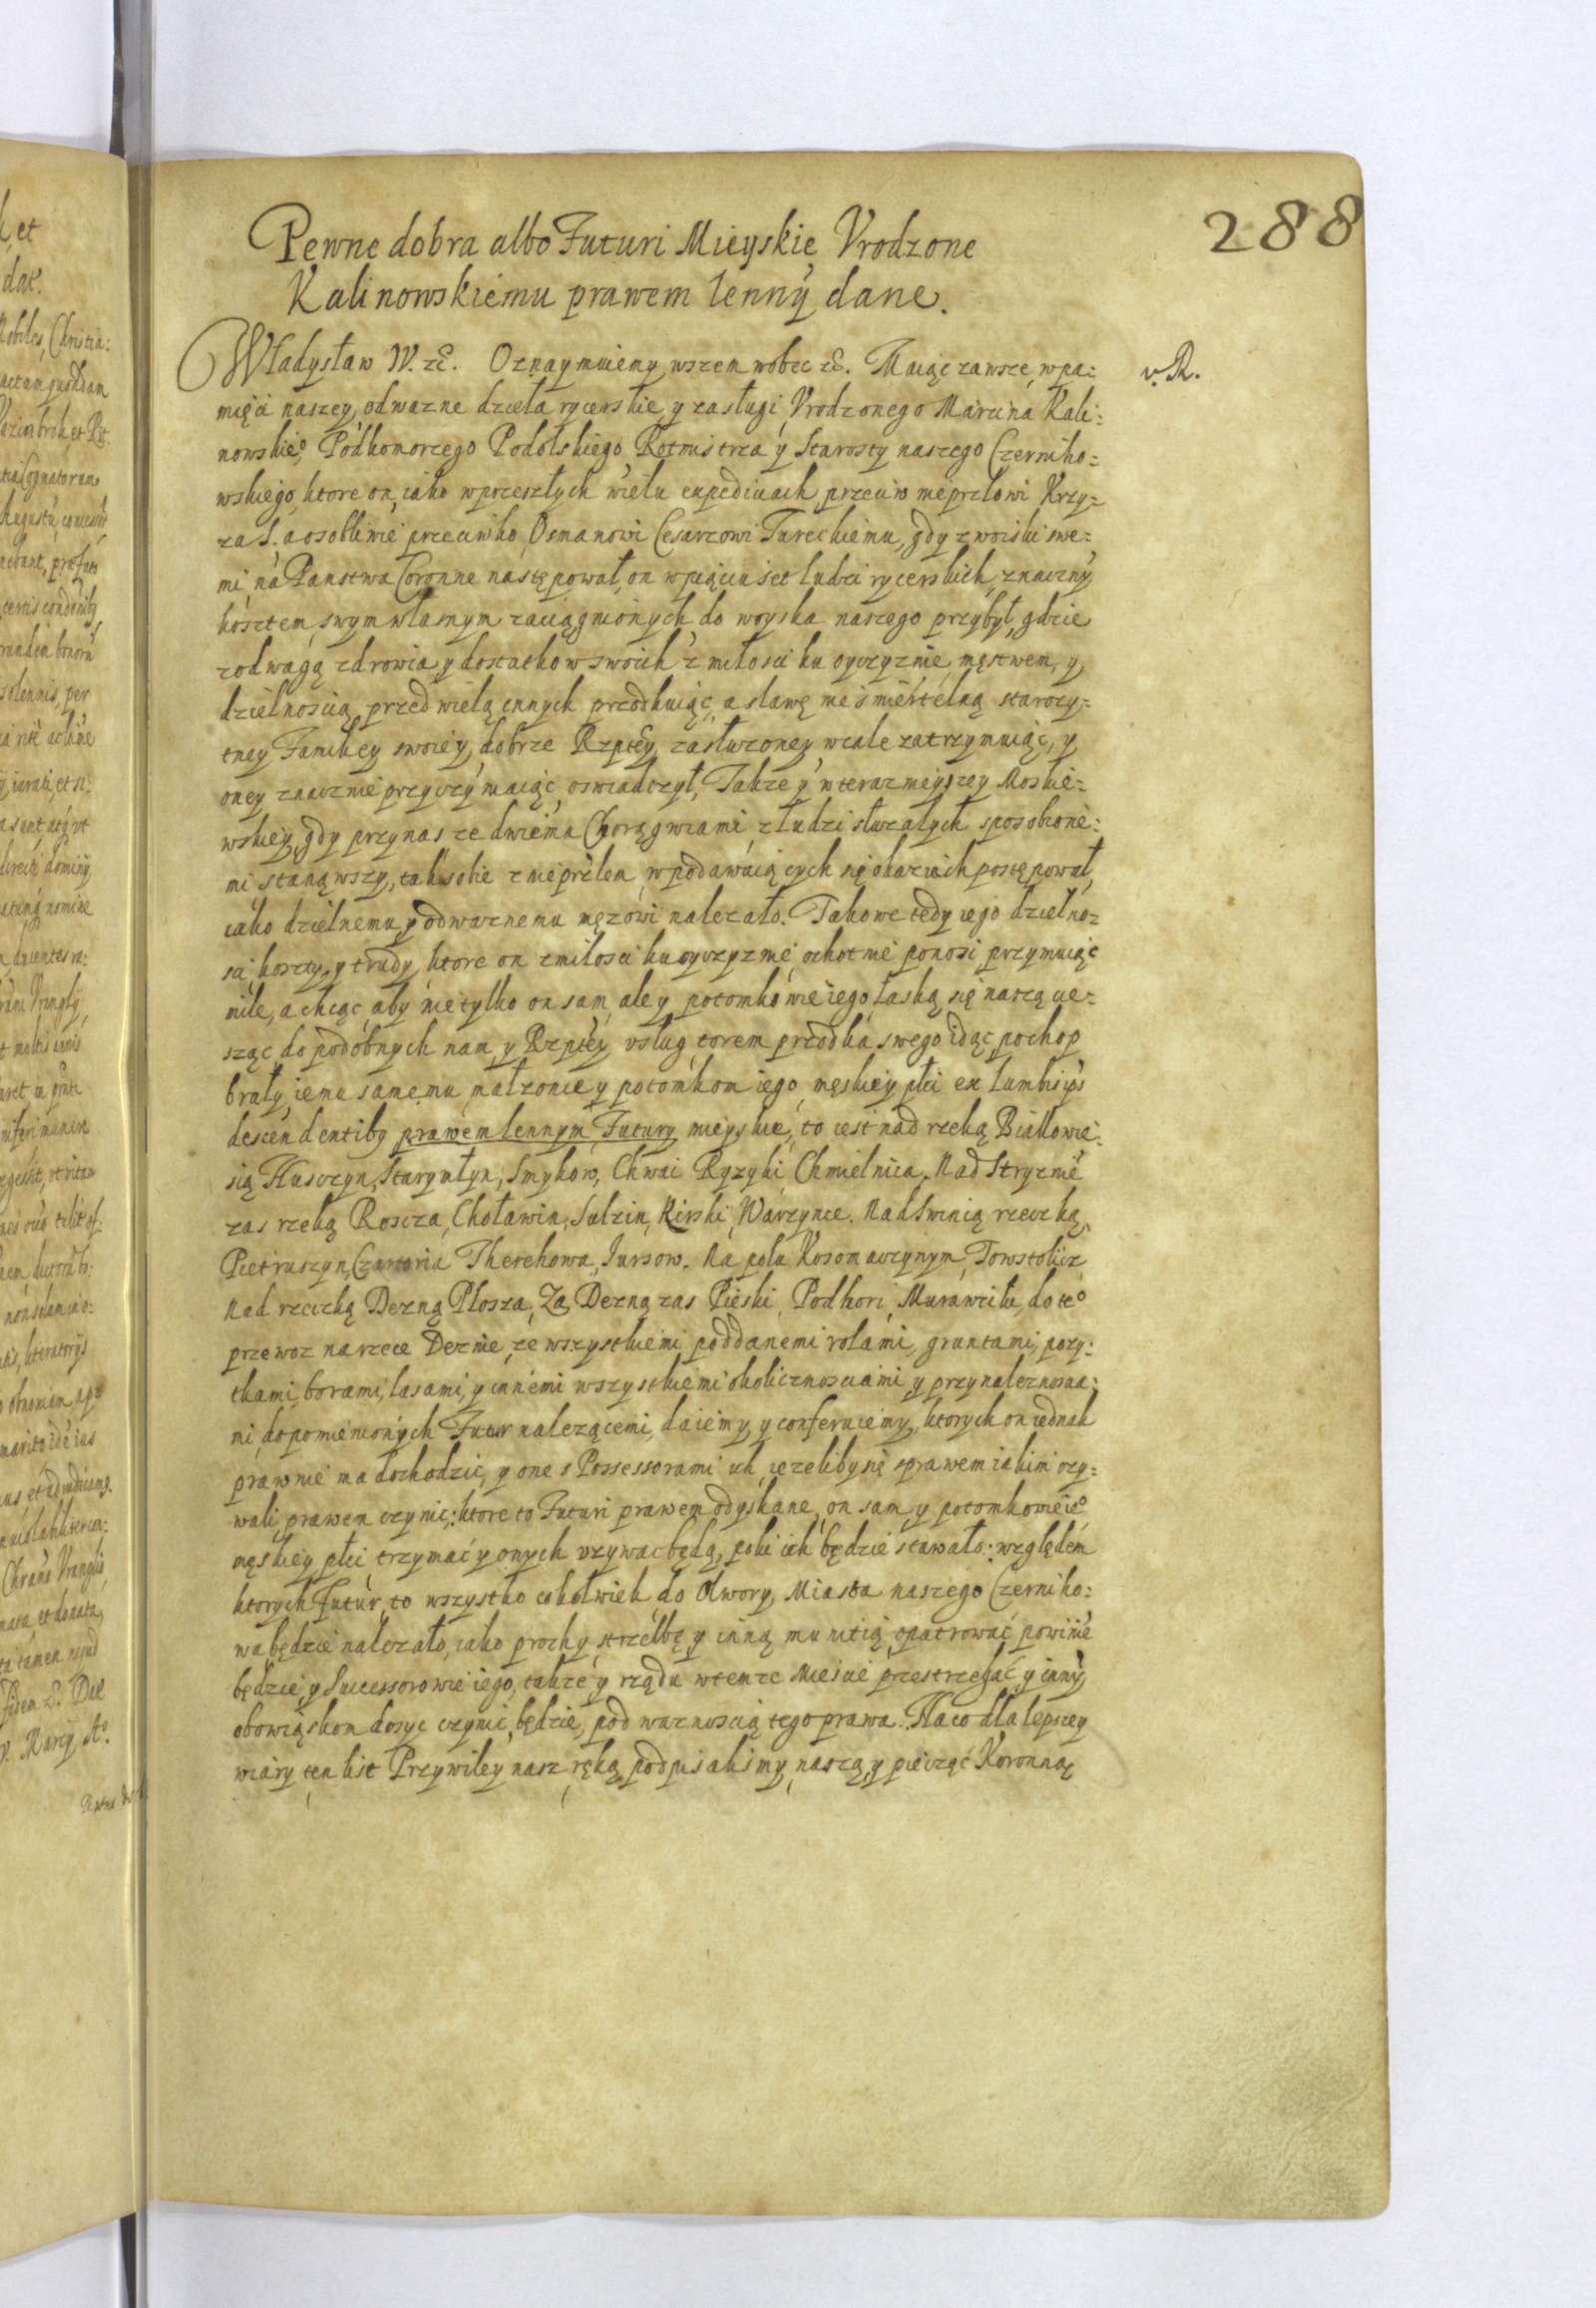 288
Pewne dobra albo Futuri Mieyskie Vrodzone
Kalinowskiemu prawem lenny dane.
Władysław IV. etc. Oznaymuiemy wszem wobec etc. Maiąc zawsze w pa=
v. R.
mięci naszey, odwazne dzieła rycerskie y zasługi Vrodzonego Marcina Kali=
nowskieº, Podkomorzego Podolskiego Rotmistrza y Starosty naszego Czerniho=
wskiego, ktore on, iako w przeszłych wielu expediciach przeciw nieprzlowi Krzy=
za S. a osobliwie przeciwko Osmanowi Cesarzowi Tureckiemu, gdy z woiski swe=
mi, na Panstwa Coronne następował, on w pięciuset ludzi rycerskich, znaczny
kosztem swym własnym zaciągnionych do woyska naszego przybył, gdzie
z odwagą zdrowia y dostatkow swoich z miłosci ku oyczyznie, męstwem, y
dzielnoscią, przed wielą innych przodkuiąc, a sławę niesmiertelną starozy=
tney Familiey swoiey, dobrze Rzptey zasłuzoney, wcale zatrzymuiąc, y
oney znacznie przyczymaiąc oswiadczył, Takze y w terazneyszey Moskie=
wskiey, gdy przy nas ze dwiema Chorągwiami z ludzi słuzałych sposobione=
mi stanąwszy, tak sobie z nieprzlem, w podawaiących się okaziach postępował,
iako dzielnemu y odwaznemu męzowi nalezało. Takowe tedy iego dzielno=
sci, koszty, y trudy, ktore on z miłosci ku oyczyznie, ochotnie ponosi przymuiąc
mile, a chcąc aby nie tylko on sam, ale y potomkowie iego łaską się naszą cie=
sząc do podobnych nam y Rzptey usług torem przodka swego idąc pochop
brały, iemu samemu, małzonce y potomkom iego męskiey płci ex lumbis ips
descendentibq prawem lennym Futury mieyskie, to iest nad rzeką Białłowie=
sią Husczyn, Starywłyn, Smykow, Chwai Ryzyki Chmielnica. Nad Stryznie
zas rzeką Roscza, Choławin, Sulzin, Kirski, Warzynce. Nad Swinią rzeczką,
Pietruszyn, Czartoria Therehowa, Jursow. Na polu Kosomaczynym, Towstolicz
Nad rzeczką Dezną Płosza, Za Dezną zas Pieski, Podhori, Muraweiki, do teº
przewoz na rzece Deznie, ze wszystkiemi poddanemi rolami, gruntami, pozy=
tkami, borami, lasami, y innemi wszystkiemi okolicznosciami y przynaleznoscia=
mi, do pomienionych Futur nalezącemi, daiemy y conferuiemy, ktorych on iednak
prawnie ma dochodzic, y one s Possessorami ich, iezeliby się s prawem iakim ozy=
wali, prawem czynic: ktore to Futuri prawem odyskane, on sam, y potomkowie ieº
męskiey płci trzymać y onych uzywac będą, poki ich będzie stawało: względem
ktorych Futur, to wszystko cokolwiek do obrony Miasta naszego Czerniho=
wa będzie nalezało, iako prochy, strzelbę, y inną munitią opatrować powinie
będzie, y Successorowie iego, takze y rządu w temze Miescie przestrzegać, y inny
obowiąskom dosyc czynic będzie, pod waznoscią tego prawa. Na co dla lepszey
wiary ten list Przywiley nasz, ręką podpisalismy naszą, y pieczęć Koronną